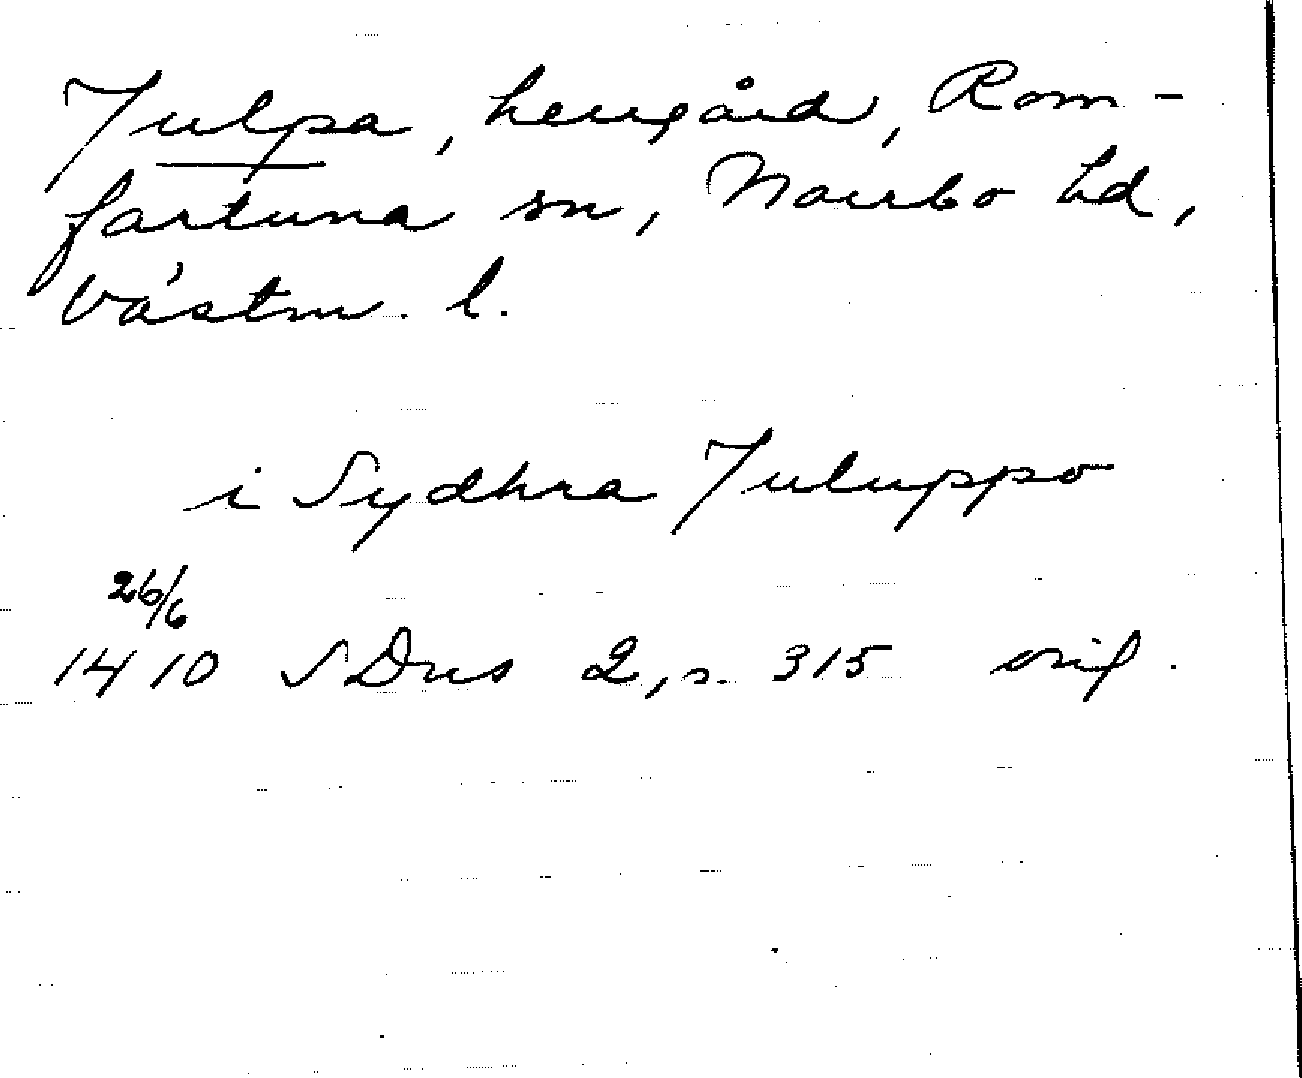 Tulpa, herrgård, Rom-
fartuna sn, Norrbo hd,
Västm. l.
i Sydhra Tuluppo
26/6
1410 SDns 2, s. 315 orig.